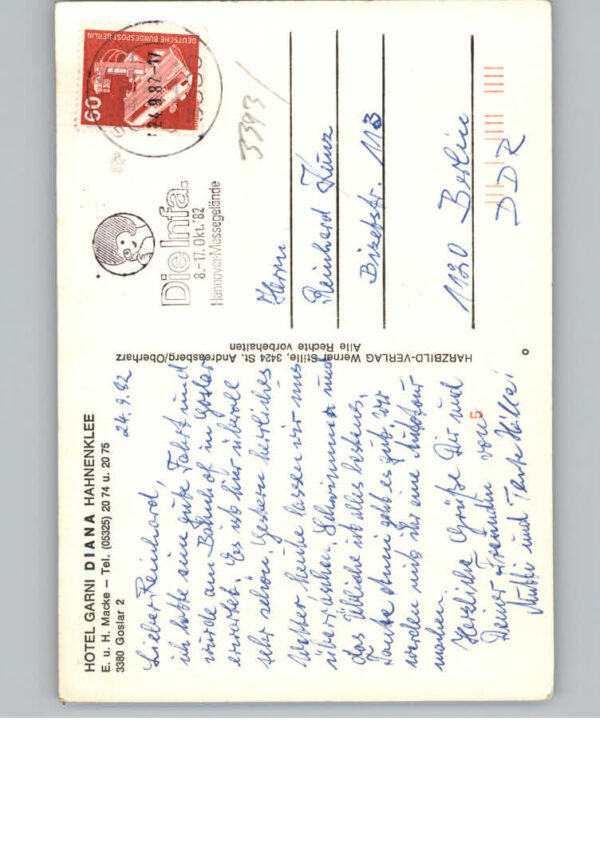 HOTEL GARNI DIANA HAHNENKLEE
E. u. H. Macke – Tel. (05325) 20 74 u. 20 75
3380 Goslar 2
24.9.82
Lieber Reinhard,
ich hatte eine gute Fahrt und
wurde am Bahnhof in Goslar
erwartet. Es ist hier
sehr schön. Gestern herrliches
Wetter heute lassen wir uns
überraschen. Schwimmen und
das Übliche ist alles bestens.
Tante Anni geht es gut, wir
werden mit ihr eine Autotour
machen.
Herzliche Grüße Dir und
Deiner Freundin von
Mutti und Tante
HARZBILD-VERLAG Werner Stille, 3424 St. Andreasberg/Oberharz
Alle Rechte vorbehalten
DEUTSCHE BUNDESPOST BERLIN
60
24.9.82-17
Die Infa.
8.-17. Okt. '82
Hannover-Messegelände
3393/
Herrn
Reinhard Kunz
Bizetstr. 113
1120 Berlin
DDR
5